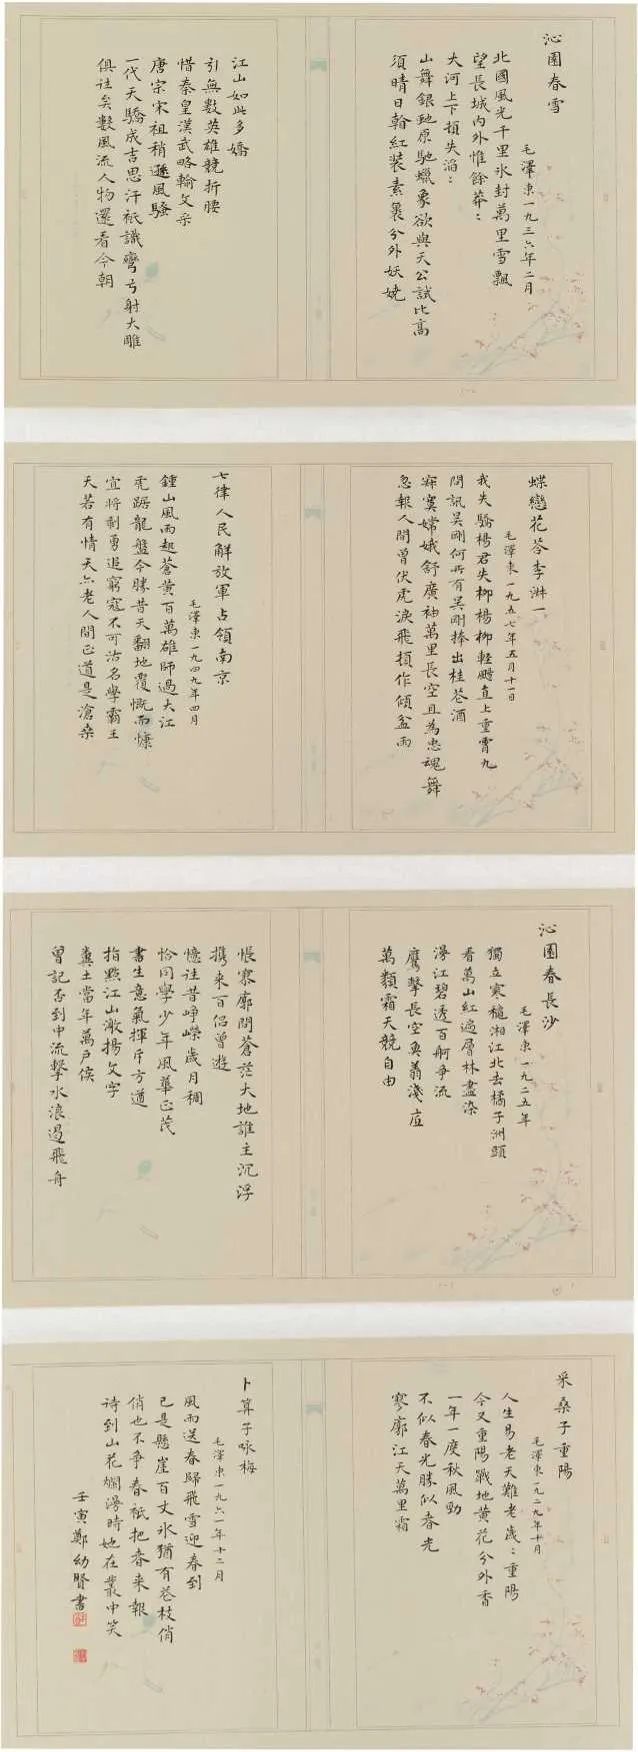 沁園春雪
毛澤東一九三六年二月
北國風光千里冰封萬里雪飄
望長城内外惟餘莽:
大河上下頓失滔:
山舞銀蛇原馳蠟象欲與天公試比高
須晴日看紅裝素裹分外妖嬈
江山如此多嬌
引無數英雄競折腰
惜秦皇漢武略輸文采
唐宗宋祖稍遜風騷
一代天驕成吉思汗衹識彎弓射大雕
俱往矣數風流人物還看今朝
蝶戀花荅李淑一
毛澤東一九五七年五月十一日
我失驕楊君失柳楊柳輕颺直上重霄九
問訊吳剛何所有吳剛捧出桂花酒
寂寞嫦娥舒廣袖萬里長空且為忠魂舞
忽報人間曾伏虎淚飛頓作傾盆雨
七律人民解放軍占領南京
毛澤東一九四九年四月
鍾山風雨起蒼黃百萬雄師過大江
虎踞龍盤今勝昔天翻地覆慨而慷
宜將剩勇追窮寇不可沽名學霸王
天若有情天亦老人間正道是滄桑
沁園春長沙
毛澤東一九二五年
獨立寒穐湘江北去橘子洲頭
看萬山紅遍層林盡染
漫江碧透百舸爭流
鷹擊長空魚翔淺底
萬類霜天競自由
悵寥廓問蒼茫大地誰主沉浮
携来百侣曾遊
憶往昔崢嶸歲月稠
恰同學少年風華正茂
書生意氣揮斥方遒
指點江山激揚文字
糞土當年萬戶侯
曾記否到中流擊水浪遏飛舟
采桑子重陽
毛澤東一九二九年十月
人生易老天難老歲:重陽
今又重陽戰地黃花分外香
一年一度秋風勁
不似春光勝似春光
寥廓江天萬里霜
卜算子咏梅
毛澤東一九六一年十二月
風雨送春歸飛雪迎春到
已是懸崖百丈冰猶有花枝俏
俏也不爭春衹把春来報
待到山花爛漫時她在叢中笑
壬寅鄭幼賢書